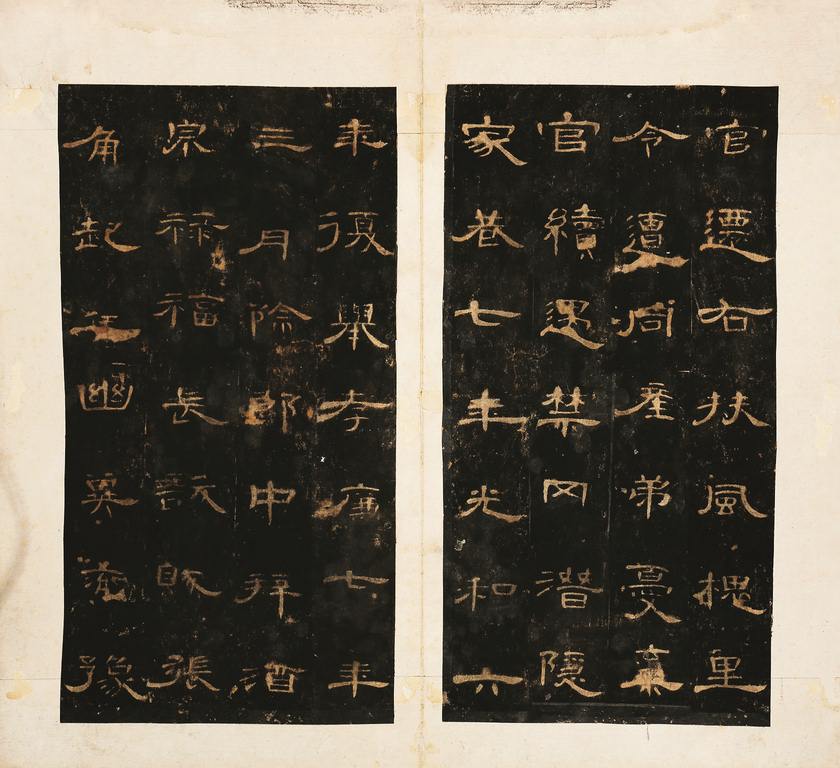 官遷右扶風槐里
令遭同產弟憂棄
官續遇禁网潛隱
家巷七年光和六
年復舉孝廉七年
三月除郎中拜酒
泉祿福長訞賊張
角起兵幽冀兗豫